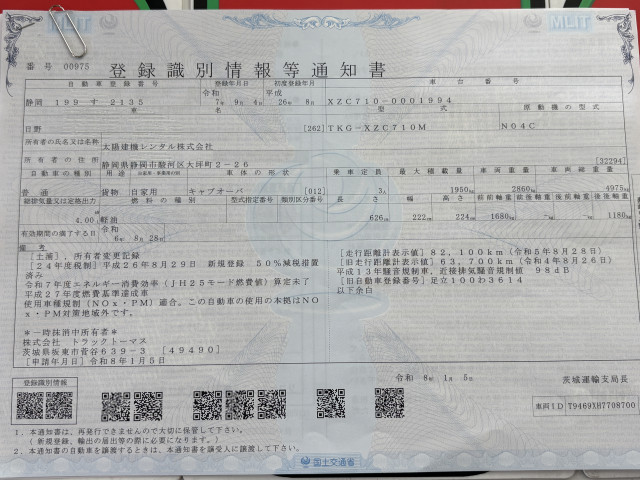 MLIT
MLIT
番号 00975
登録識別情報等通知書
自動車登録番号 登録年月日 初度登録年月 車台番号
静岡 199 す 2135 令和 7年 9月 4日 平成 26年 8月 XZC710-0001994
車名 型式 原動機の型式
日野 [262] TKG-XZC710M N04C
所有者の氏名又は名称 太陽建機レンタル株式会社
所有者の住所 静岡県静岡市駿河区大坪町2-26 [32294]
自動車の種別 用途 自家用・事業用の別 車体の形状 乗車定員 最大積載量 車両重量 車両総重量
普通 貨物 自家用 キャブオーバ [012] 3人 1950kg 2860kg 4975kg
総排気量又は定格出力 燃料の種類 型式指定番号 類別区分番号 長さ 幅 高さ 前前軸重 前後軸重 後前軸重 後後軸重
4.00 軽油 626cm 222cm 224cm 1680kg -kg -kg 1180kg
有効期間の満了する日 令和 6年 8月 28日
備考
[土浦],所有者変更記録
[24年度税制]平成26年8月29日 新規登録 50%減税措置
済み
令和7年度エネルギー消費効率(JH25モード燃費値)算定未了
平成27年度燃費基準達成車
使用車種規制(NOx・PM)適合。この自動車の使用の本拠はNO
x・PM対策地域外です。
*一時抹消中所有者*
株式会社 トラックトーマス
茨城県坂東市菅谷639-3 [49490]
[申請年月日]令和8年1月5日
[走行距離計表示値]82,100km(令和5年8月28日)
[旧走行距離計表示値]63,700km(令和4年8月26日)
平成13年騒音規制車,近接排気騒音規制値 98dB
[旧自動車登録番号]足立100わ3614
以下余白
登録識別情報
令和 8年 1月 5日 茨城運輸支局長
車両ID T9469XH7708700
1.本通知書は、再発行できませんので大切に保管して下さい。
(新規登録、輸出の届出等の際に必要になります。)
2.本通知書の自動車を譲渡するときは、本通知書を譲受人に譲渡して下さい。
国土交通省